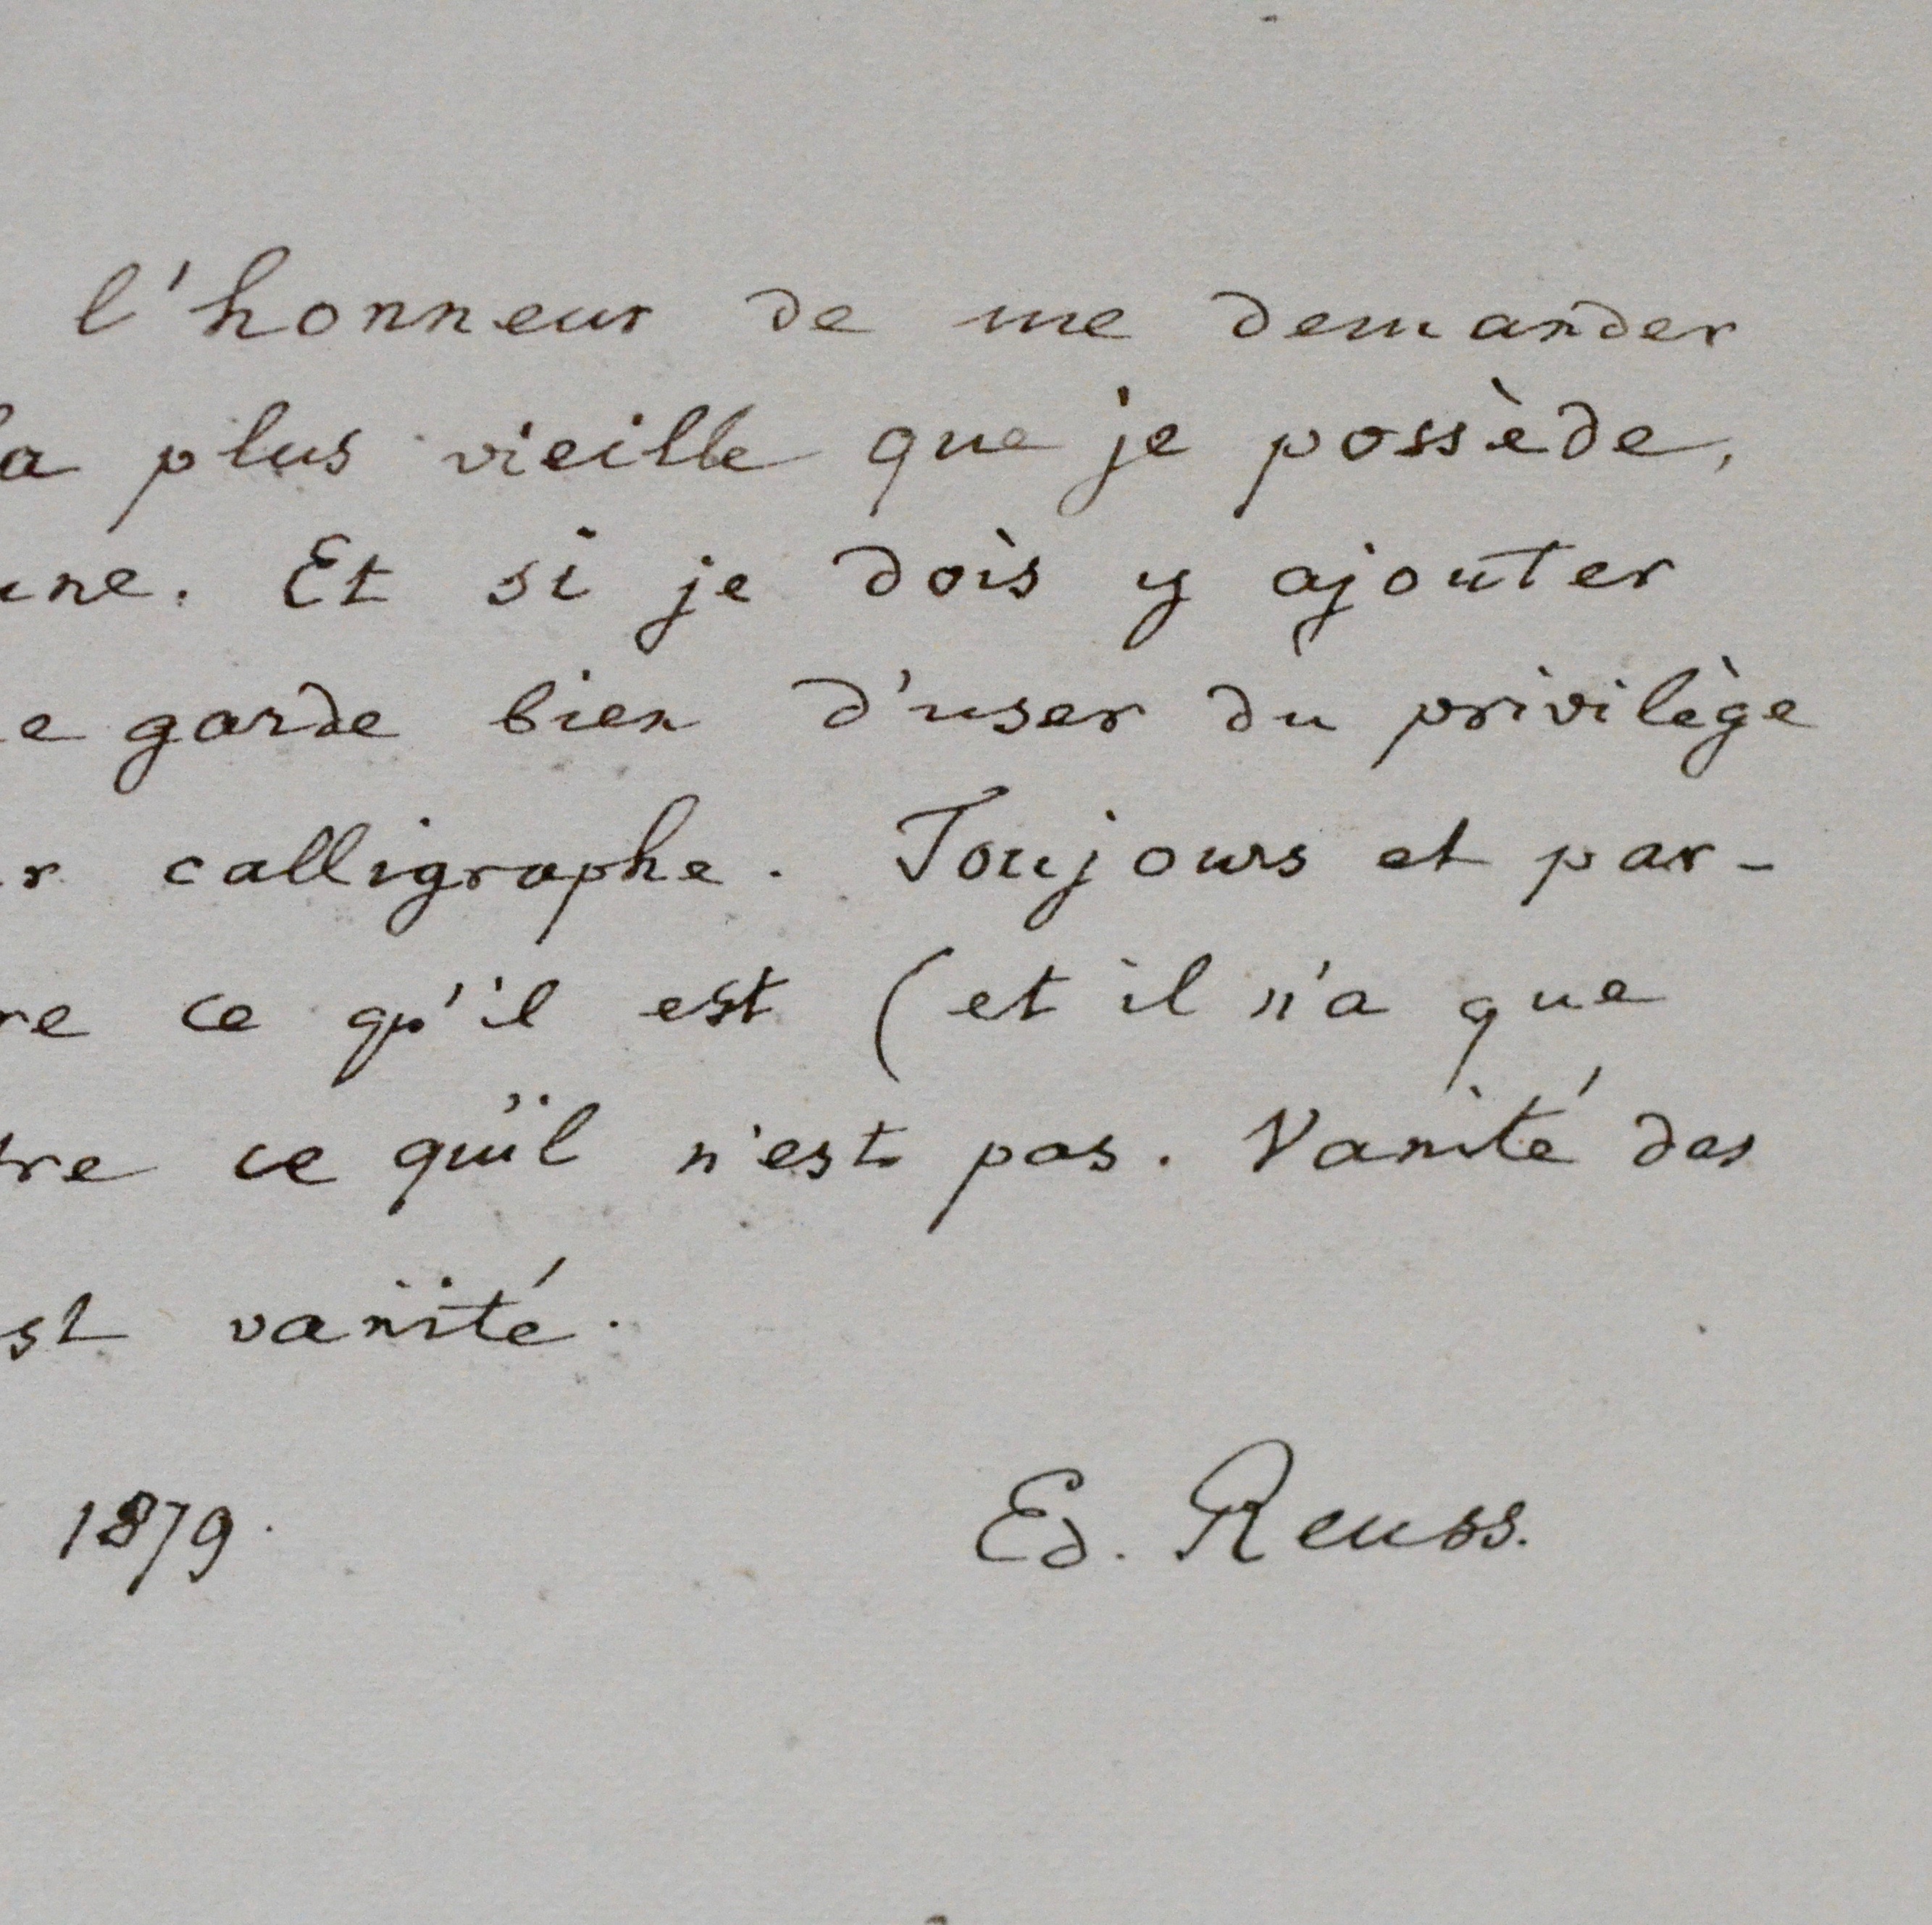 l'honneur de me demander
a plus vieille que je possède,
une. Et si je dois y ajouter
e garde bien d'user du privilège
r calligraphe. Toujours et par-
re ce qu'il est (et il n'a que
tre ce qu'il n'est pas. Vanité des
st vanité.
1879. Ed. Reuss.